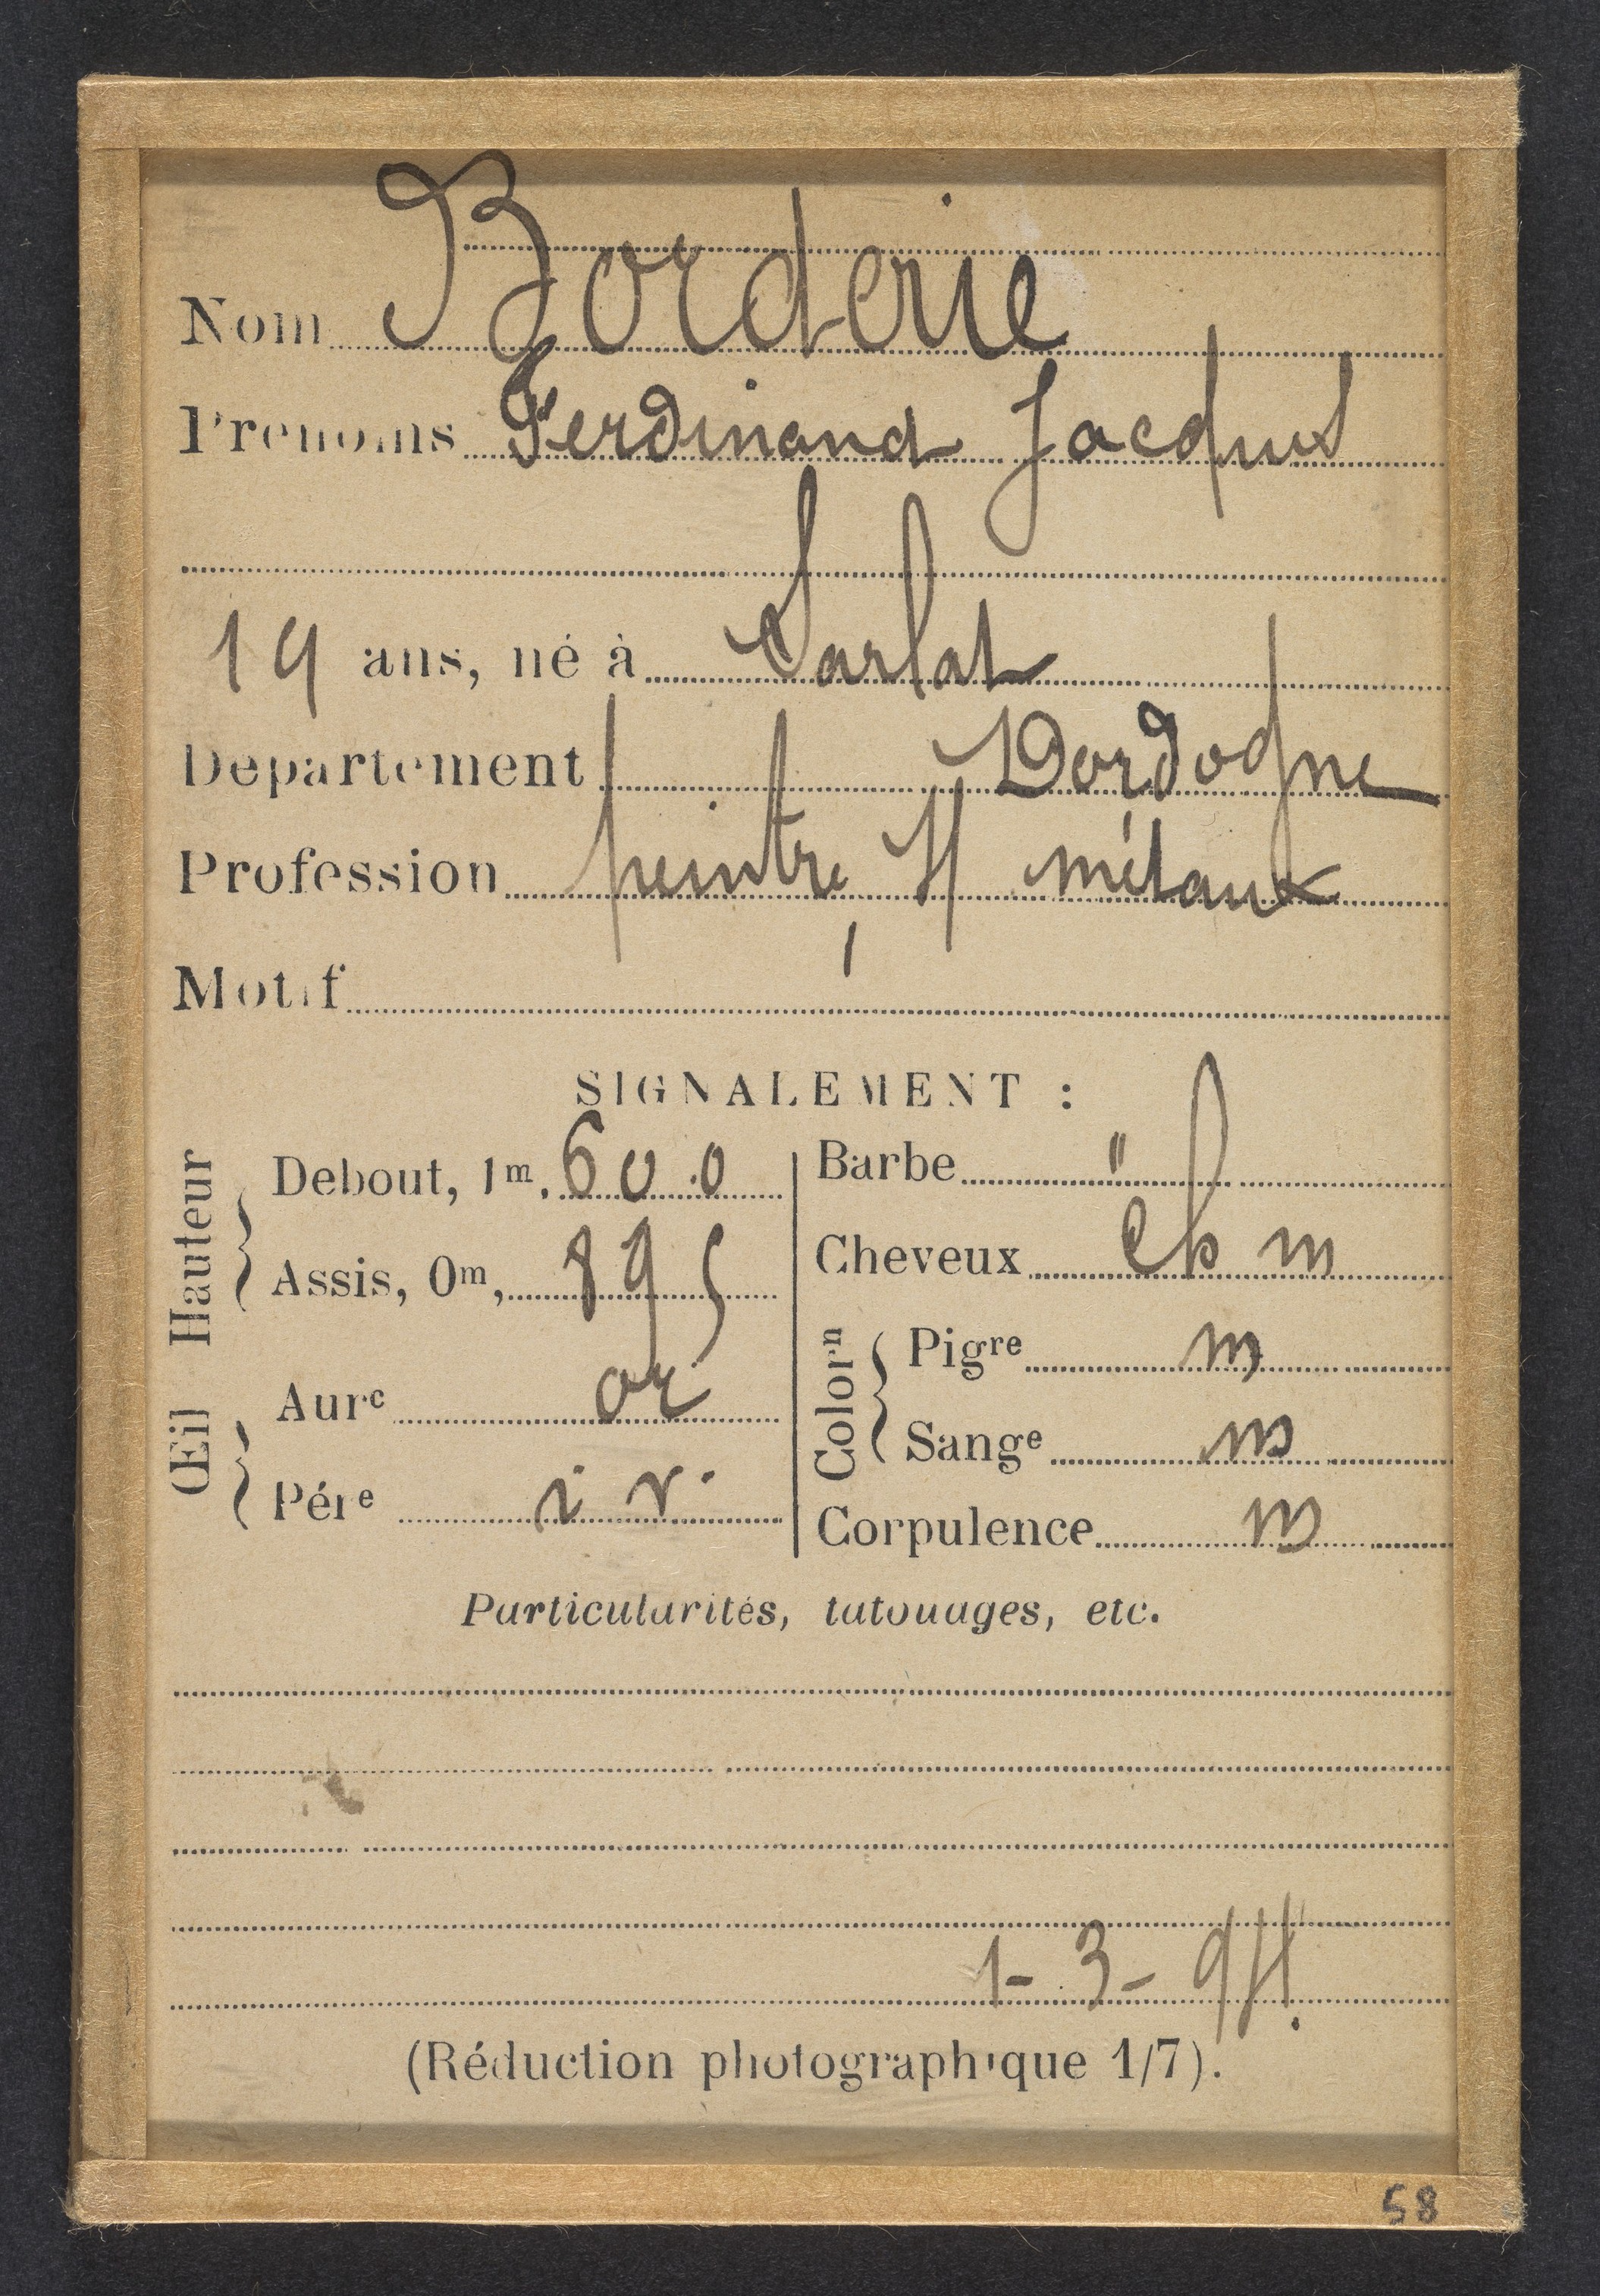 Nom Borderie
Prénoms Ferdinand Jacques
19 ans, né à Sarlat
Département Dordogne
Profession peintre s/ métaux
Motif
SIGNALEMENT :
Hauteur
Debout, 1m. 60 0
Assis, 0m, 895
Œil
Aure or
Pére i v.
Barbe "
Cheveux ch m
Colorn
Pigre m
Sange m
Corpulence m
Particularités, tatouages, etc.
1-3-94.
(Réduction photographique 1/7).
58